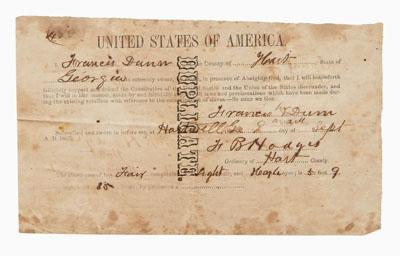 UNITED STATES OF AMERICA.
I, Francis Dunn of the County of Hart State of
Georgia do solemnly swear, or affirm, in presence of Almighty God, that I will henceforth
faithfully support and defend the Constitution of the United States and the Union of the States thereunder, and
that I will in like manner, abide by and faithfully support all laws and proclamations which have been made during
the existing rebellion with reference to the emancipation of slaves—So help me God.
Francis Dunn
Subscribed and sworn to before me, at
Hartwell Ga day of Sept
A. D. 1865.
F B Hodges
Ordinary of Hart County.
The above named has Fair complexion, Light hair, and Hazle eyes; is 5 feet 9
DUPLICATE.